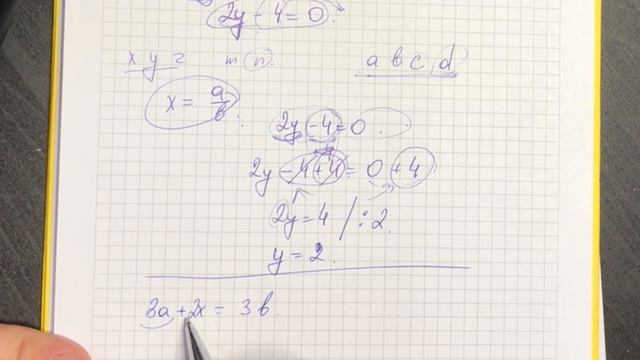 2y - 4 = 0
x y z m n a b c d
x = a/b
2y - 4 = 0.
2y - 4 + 4 = 0 + 4
2y = 4 / : 2.
y = 2.
3a + 2x = 3b.